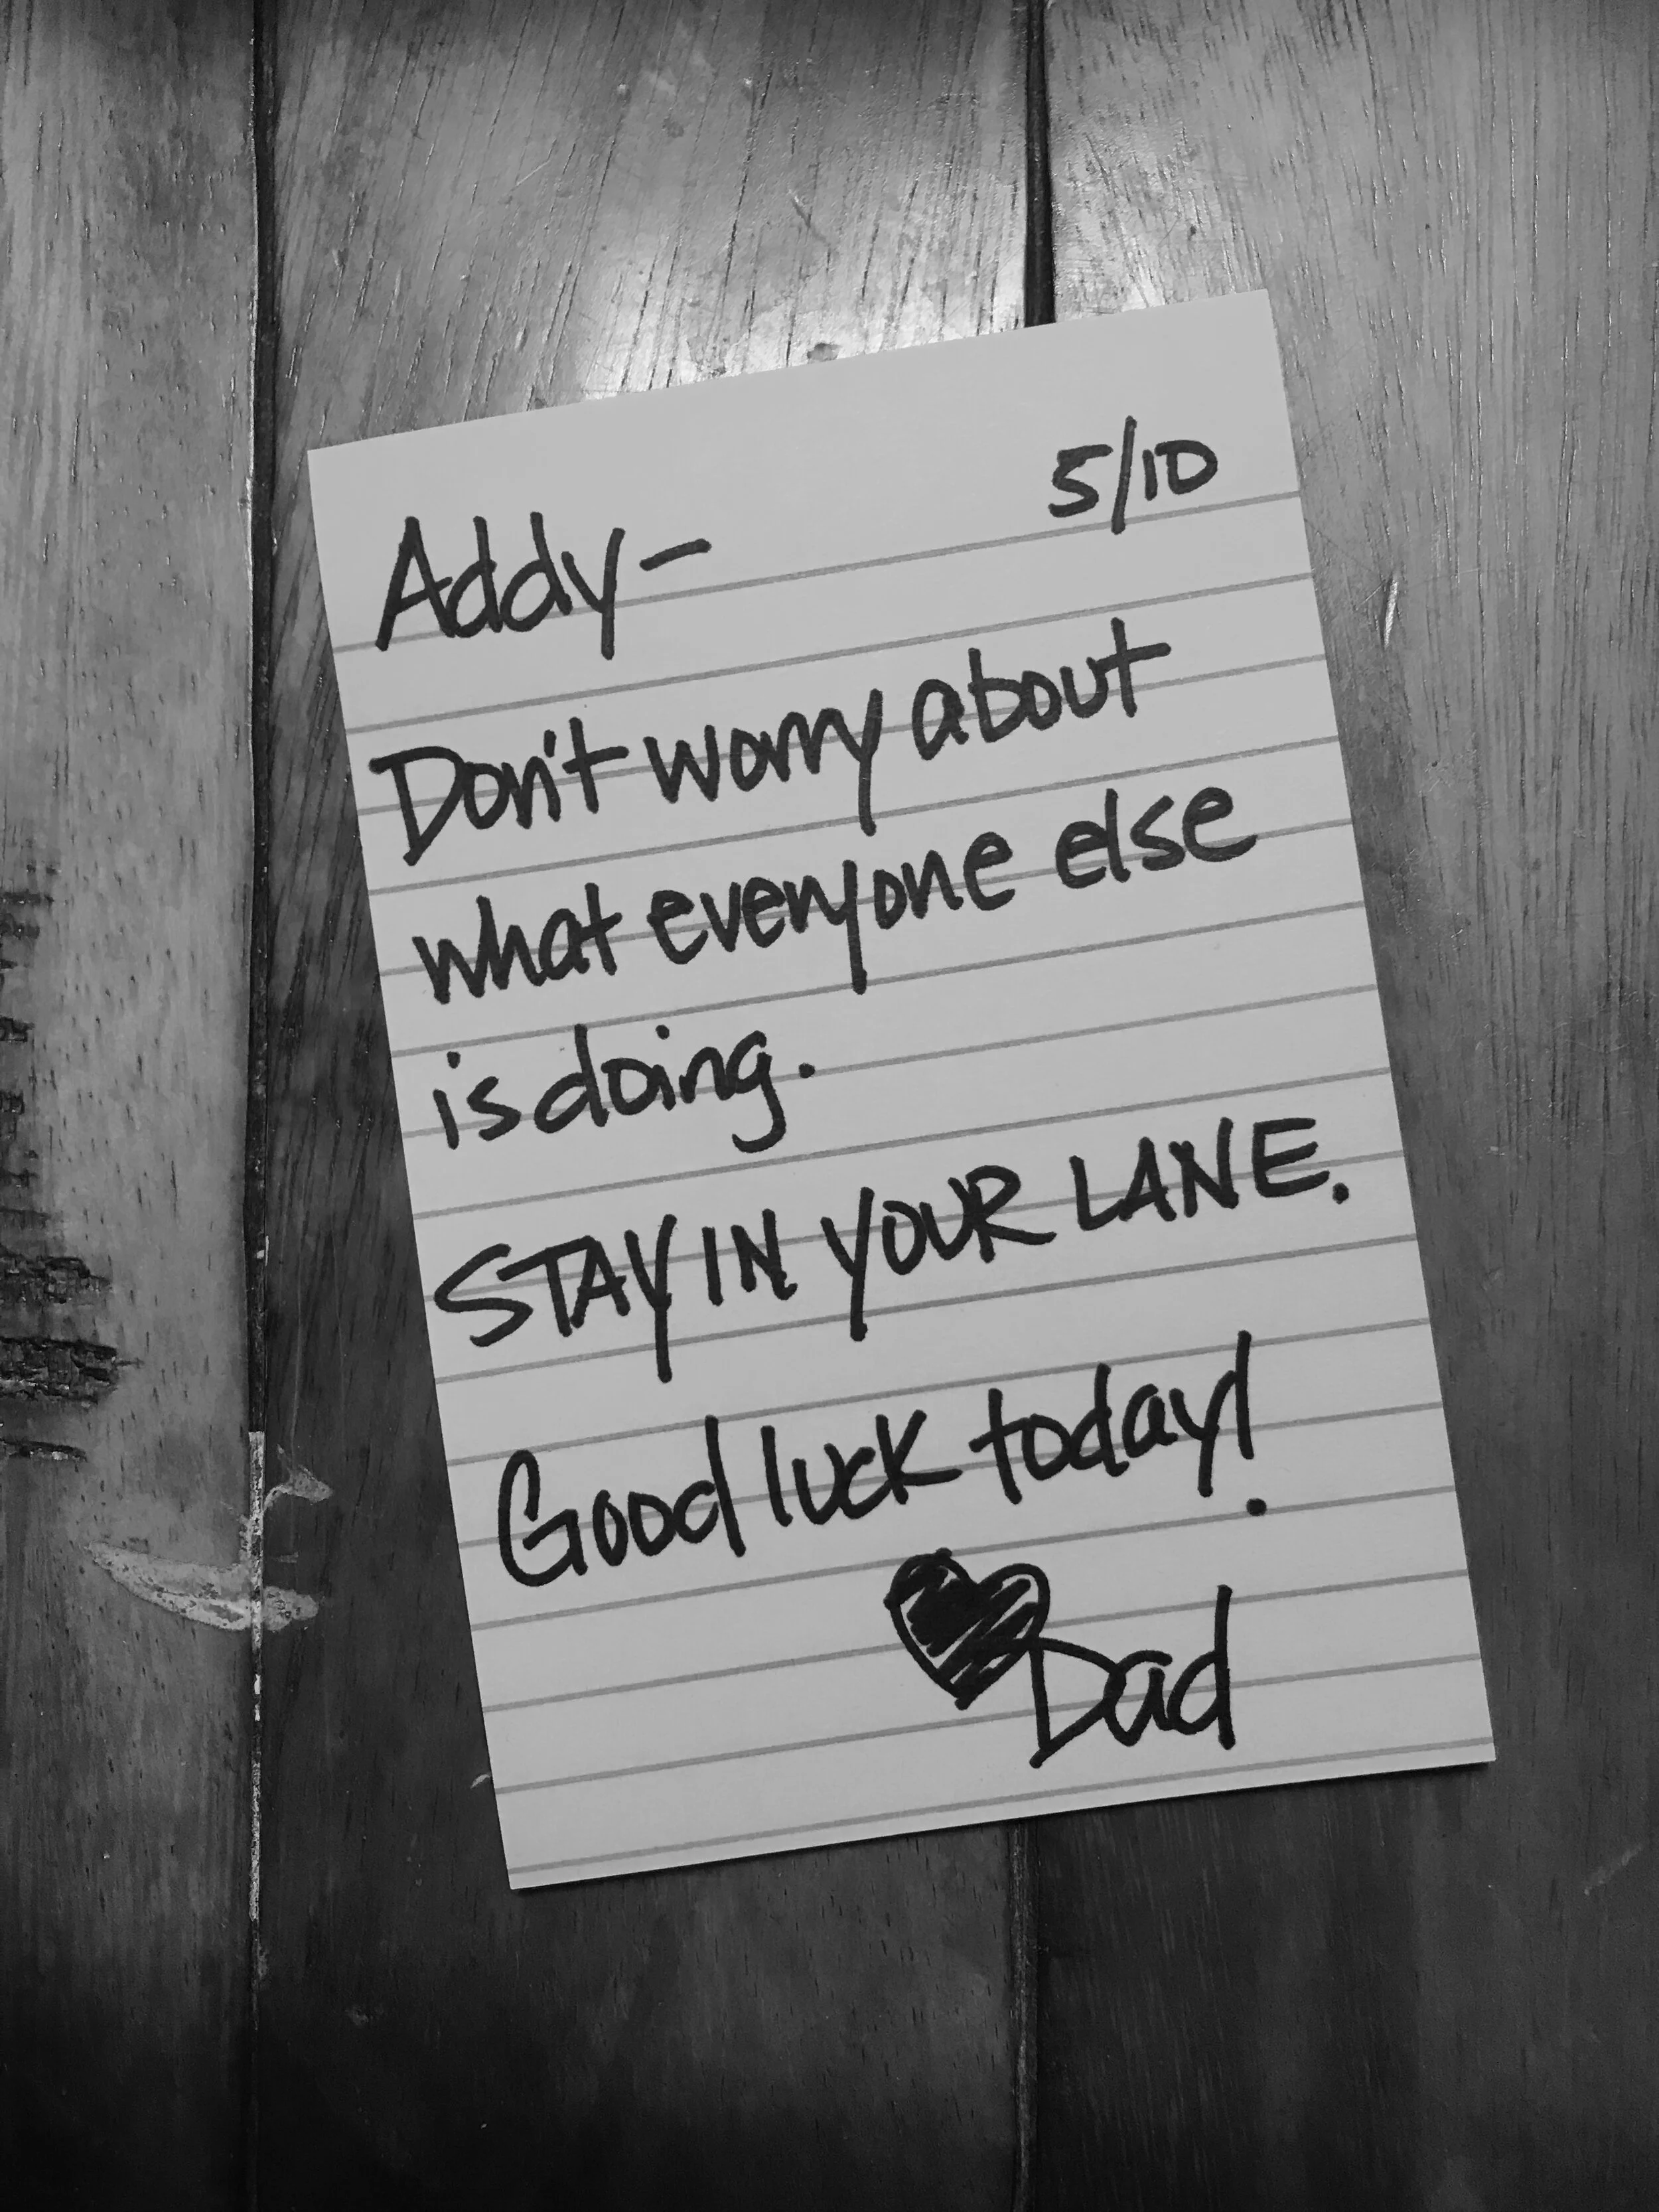 5/10
Addy-
Don't worry about
what everyone else
is doing.
STAY IN YOUR LANE.
Good luck today!
♥ Dad